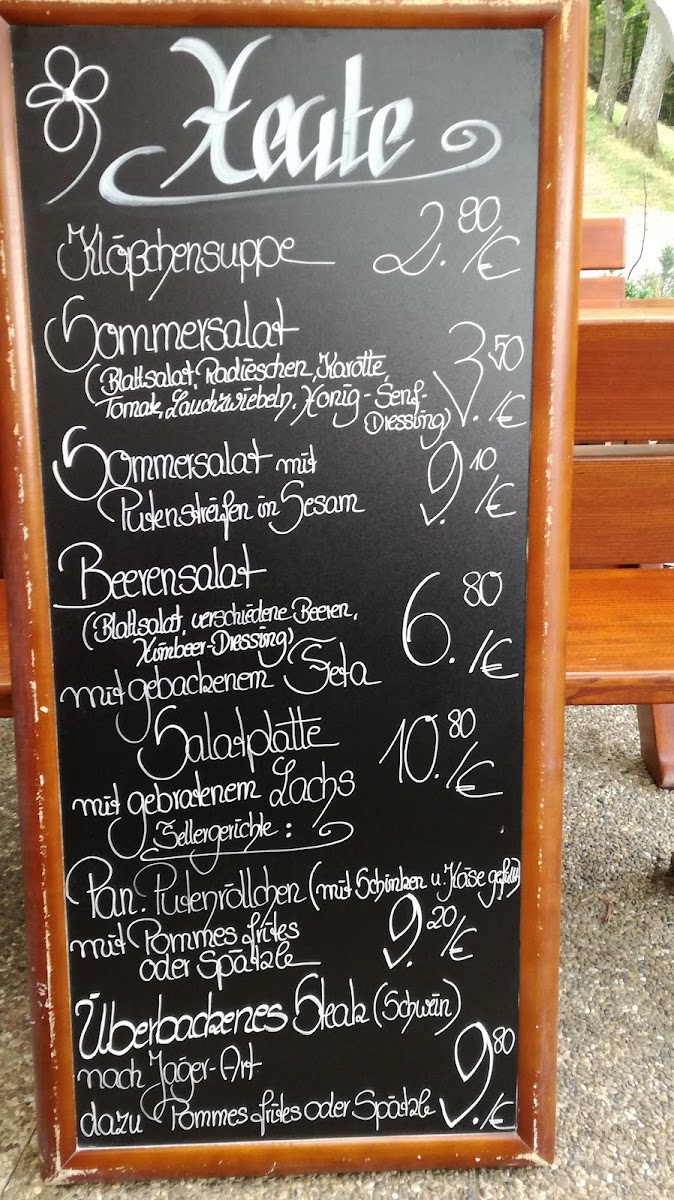 Heute
Klößchensuppe 2.80/€
Sommersalat
(Blattsalat, Radieschen, Karotte,
Tomate, Lauchzwiebeln, Honig-Senf-
Dressing) 3.50/€
Sommersalat mit
Putenstreifen in Sesam 9.10/€
Beerensalat
(Blattsalat, verschiedene Beeren,
Himbeer-Dressing) 6.80/€
mit gebackenem Feta
Salatplatte 10.80/€
mit gebratenem Lachs
Tellergerichte:
Pan. Putenröllchen (mit Schinken u. Käse gefüllt)
mit Pommes frites 9.20/€
oder Spätzle
Überbackenes Steak (Schwein)
nach Jäger-Art 9.80/€
dazu Pommes frites oder Spätzle